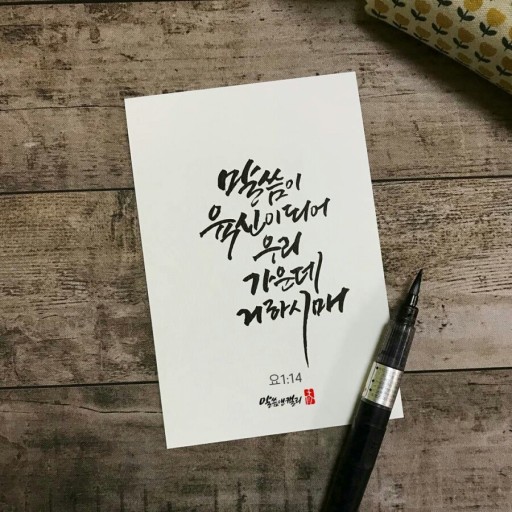 말씀이
육신이 되어
우리
가운데
거하시매
요1:14
말씀앤캘리